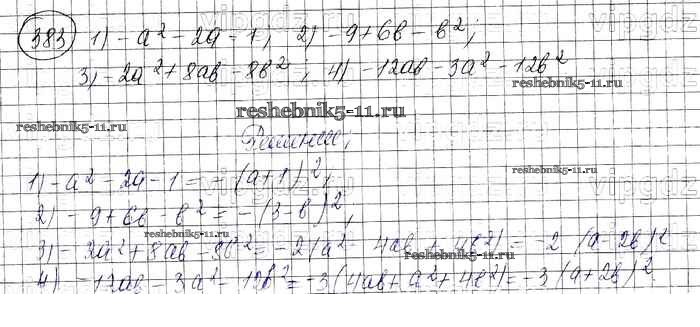 383 1) -a² - 2a - 1; 2) -9+6b - b²;
3) -2a²+8ab - 8b²; 4) -12ab - 3a² - 12b²
reshebnik5-11.ru
reshebnik5-11.ru
reshebnik5-11.ru
Решение;
1) -a² - 2a - 1 = -(a+1)²;
2) -9+6b - b² = -(3-b)²;
reshebnik5-11.ru
3) -2a²+8ab - 8b² = -2(a² - 4ab + 4b²) = -2(a-2b)²
reshebnik5-11.ru
4) -12ab - 3a² - 12b² = -3(4ab+a²+4b²) = -3(a+2b)²
vipgdz
vipgdz
vipgdz